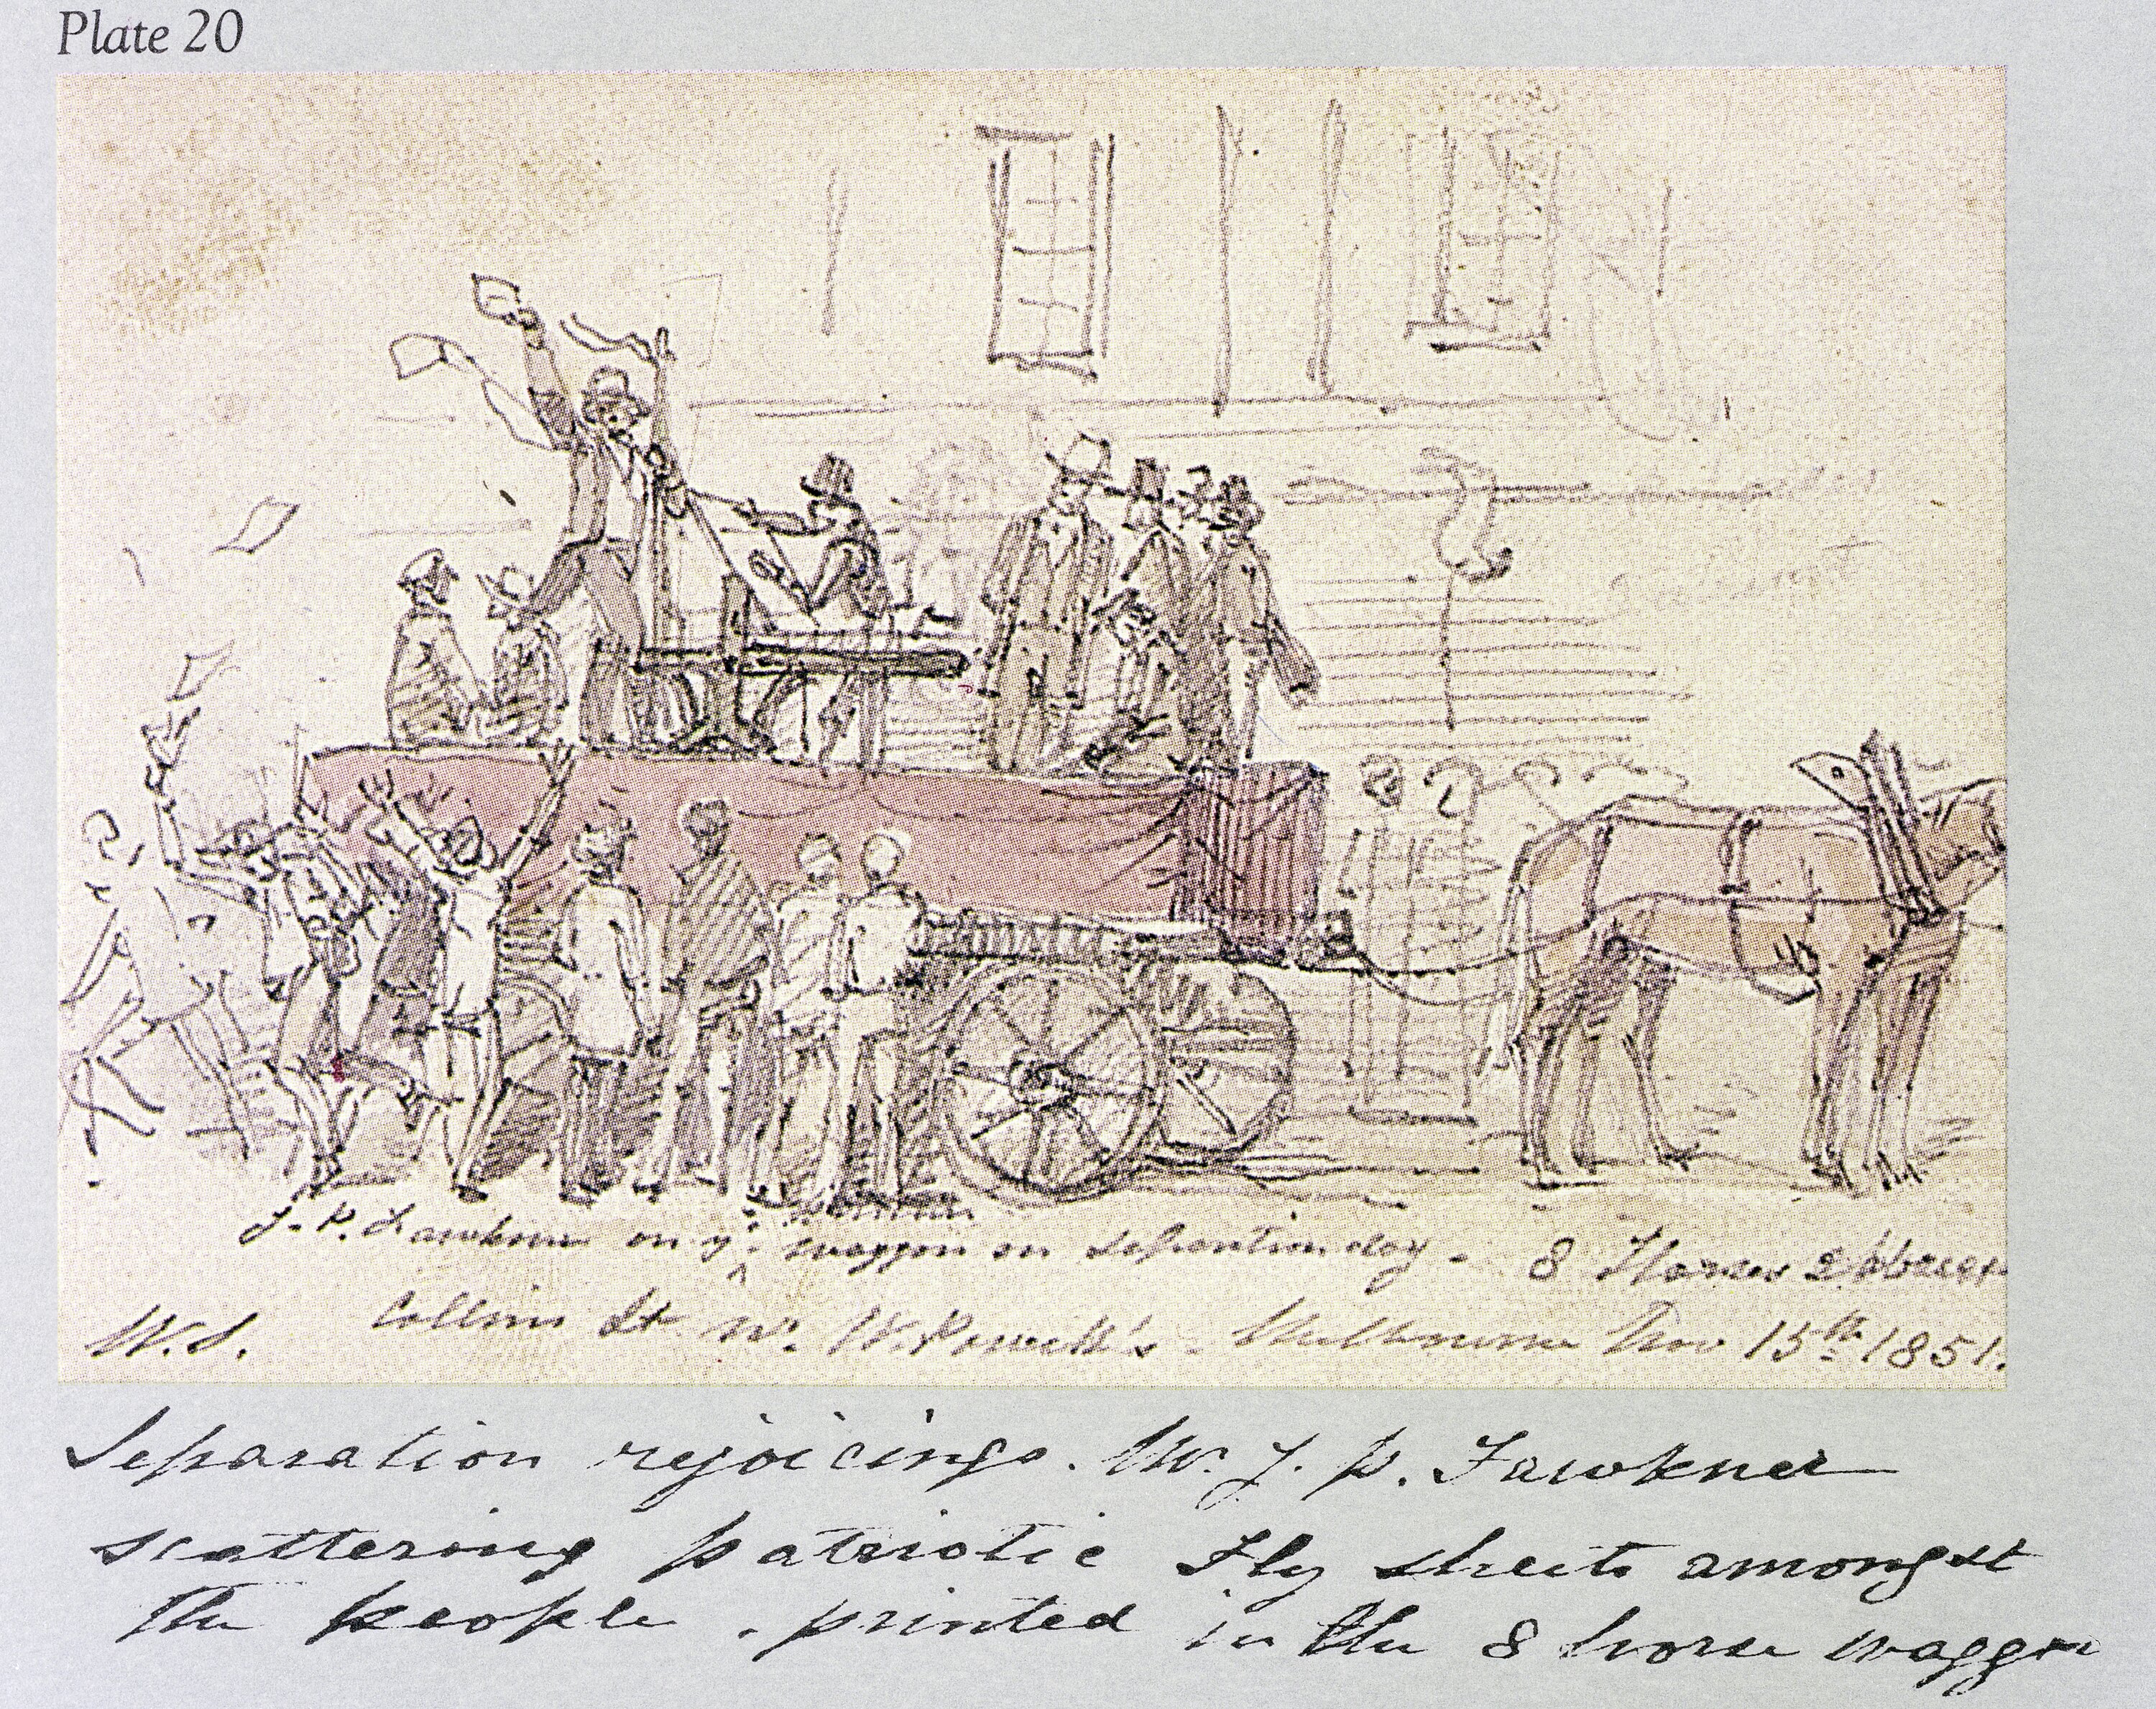 Plate 20
J. P. Fawkner on ye. waggon on separation day - 8 Horses 2 abreast
W.S.
Collins St nr. W. Powell's - Melbourne Nov 15th 1851.
Separation rejoicings. Mr. J. P. Fawkner
scattering patriotic Fly sheets amongst
the people. printed in the 8 horse waggon